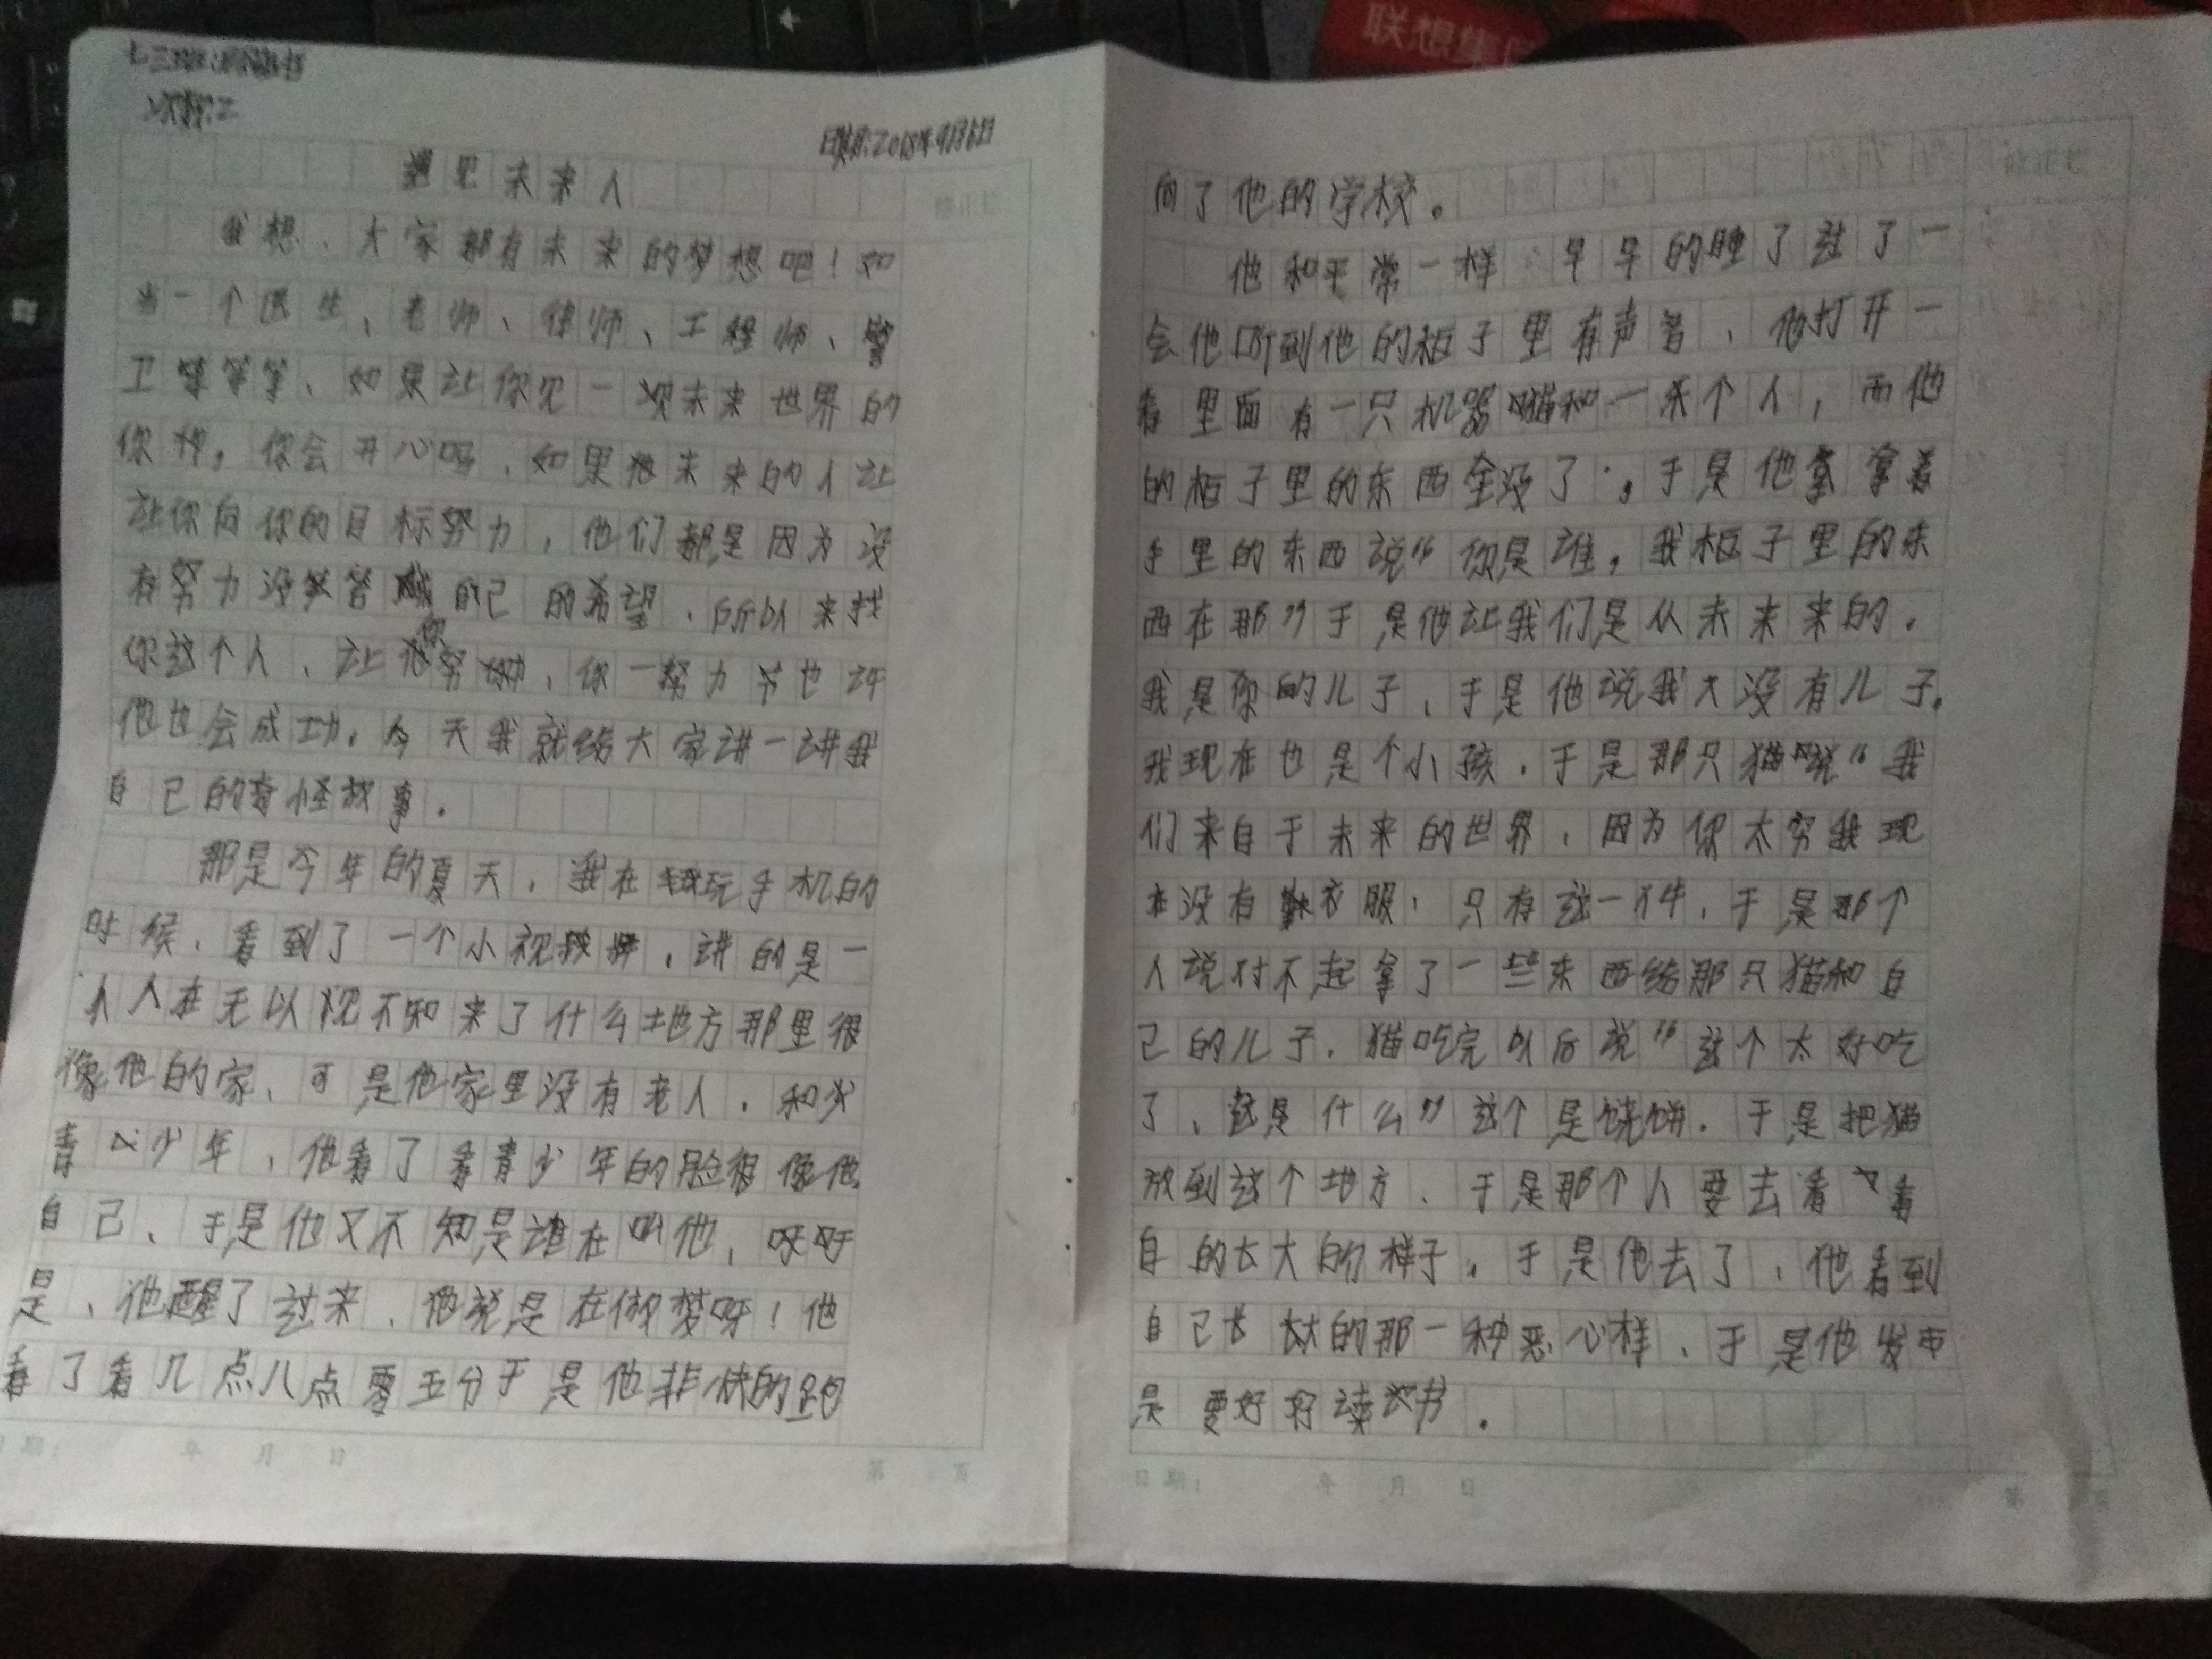 联想集
七三班
日期:2018年9月6日
遇见未来人
我想、大家都有未来的梦想吧！如
当一个医生、老师、律师、工程师、警
卫等等等、如果让你见一次未来世界的
你，你会开心吗、如果未来的人让
让你向你的目标努力，他们都是因为没
有努力没自己的希望.所以来找
你这个人、让你努、你一努力
他也会成功.今天我就给大家讲一讲我
自己的奇怪故事.
那是今年的夏天，我在玩手机的
时候、看到了一个小视，讲的是一
人在无以不知来了什么地方那里很
像他的家、可是他家里没有老人.和
青少年，他看了看青少年的脸很像他
自己、于是他又不知是谁在叫他，呀于
是、他醒了过来、他说是在做梦呀！他
看了看几点八点零五分于是他非快的跑
向了他的学校。
他和平常一样 早早的睡了过了一
会他听到他的柜子里有声音、他打开一
看里面有一只机器猫和一个人，而他
的柜子里的东西全没了.于是他拿着
手里的东西说“你是谁，我柜子里的东
西在那”于是他让我们是从未来来的.
我是你的儿子、于是他说我大没有儿子.
我现在也是个小孩.于是那只猫说“我
们来自于未来的世界、因为你太穷我现
在没有衣服，只有这一件，于是那个
人说对不起拿了一些东西给那只猫和自
己的儿子.猫吃完以后说“这个太好吃
了、这是什么”这个是烧饼.于是把猫
放到这个地方、于是那个人要去看看
自的长大的样子.于是他去了、他看到
自己长大的那一种恶心样、于是他发
是要好好读书.
日期: 年 月 日 第 页
日期: 年 月 日 第 页